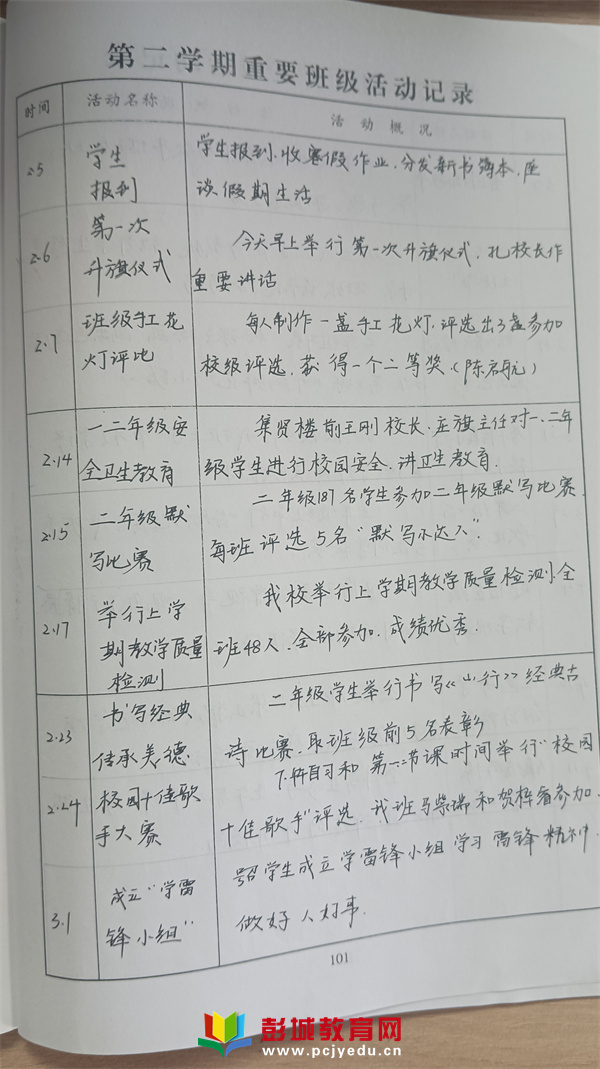 第二学期重要班级活动记录
时间 活动名称 活动概况
2.5 学生报到 学生报到、收寒假作业、分发新书簿本、座
谈假期生活
2.6 第一次升旗仪式 今天早上举行第一次升旗仪式,孔校长作
重要讲话
2.7 班级手工花灯评比 每人制作一盏手工花灯,评选出3盏参加
校级评选,获得一个二等奖.(陈
2.14 一二年级安全卫生教育 集贤楼前王刚校长、庄旗主任对一、二年
级学生进行校园安全、讲卫生教育.
2.15 二年级默写比赛 二年级187名学生参加二年级默写比赛,
每班评选5名“默写小达人”.
2.17 举行上学期教学质量检测 我校举行上学期教学质量检测,全
班48人,全部参加,成绩优秀.
2.23 书写经典传承美德 二年级学生举行书写《山行》经典古
诗比赛,取班级前5名表彰
2.24 校园十佳歌手大赛 下午自习和第一、二节课时间举行“校园
十佳歌手”评选,我班马崇瑞和贺梓睿参加.
3.1 成立“学雷锋小组” 号召学生成立学雷锋小组学习雷锋精神
做好人好事.
101
彭城教育网
www.pcjyedu.cn